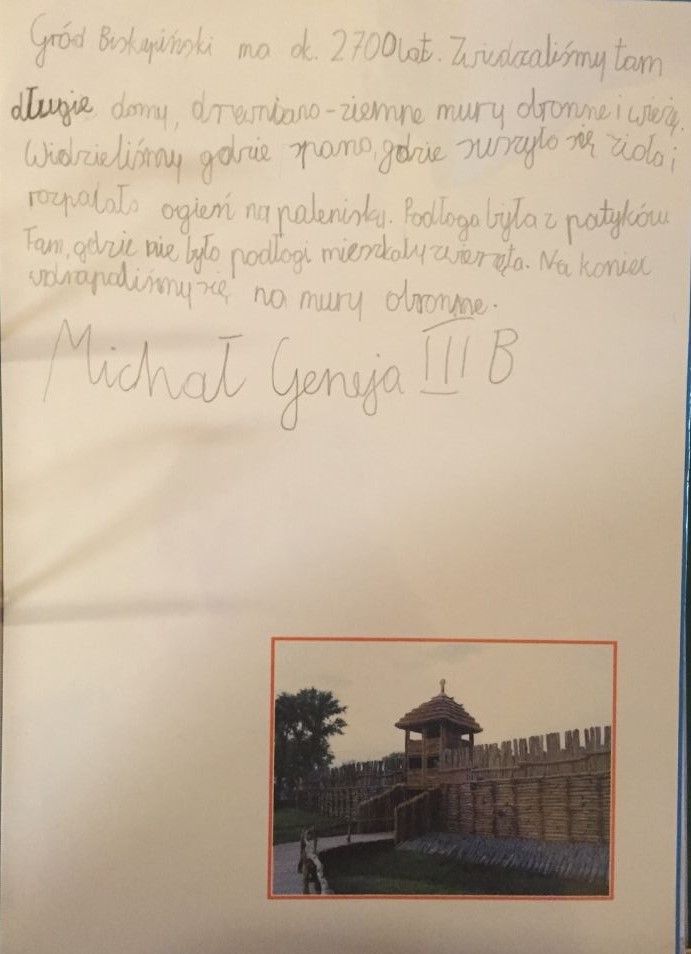 Gród Biskupiński ma ok. 2700 lat. Zwiedzaliśmy tam
długie domy, drewniano-ziemne mury obronne i wieżę.
Widzieliśmy gdzie spano, gdzie suszyło się zioła i
rozpalało ogień na palenisku. Podłoga była z patyków
Tam, gdzie nie było podłogi mieszkały zwierzęta. Na koniec
wdrapaliśmy się na mury obronne.
Michał Geneja III B